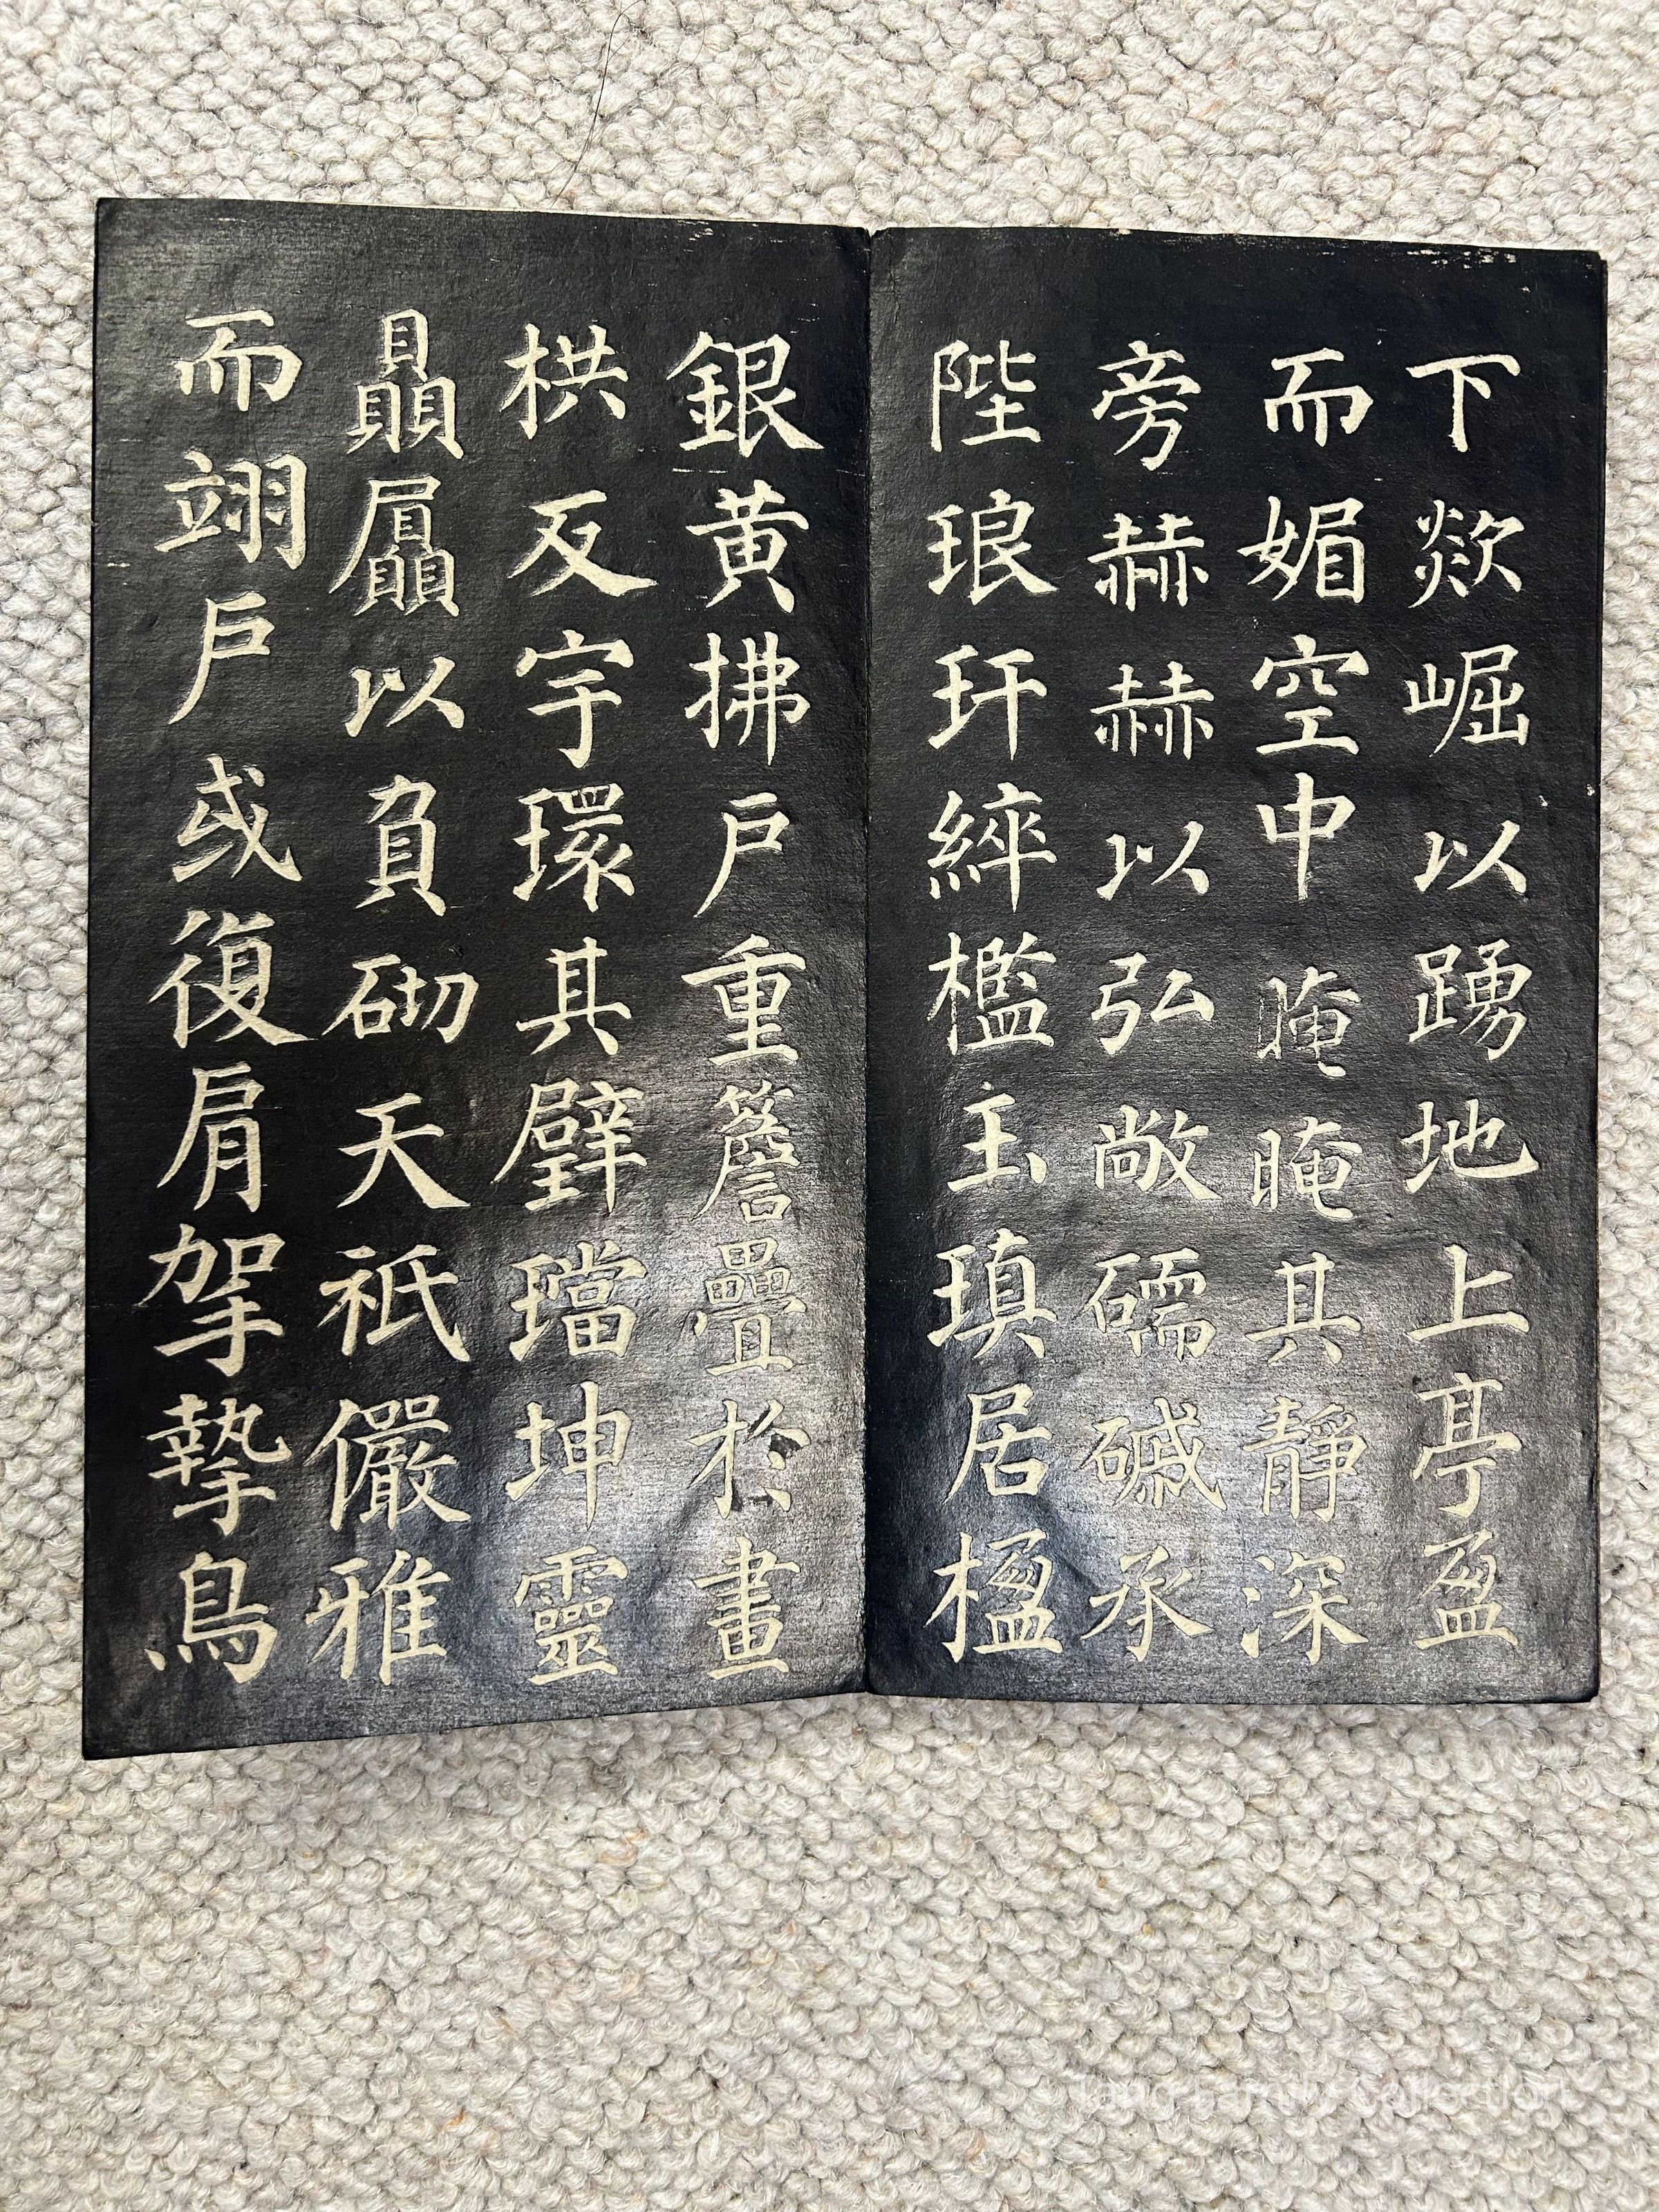 下欻崛以踴地上亭盈
而媚空中晻晻其靜深
旁赫赫以弘敞礝碱承
陛琅玕綷檻玉瑱居楹
銀黃拂戶重簷疊於畫
栱反宇環其壁璫坤靈
贔屭以負砌天祇儼雅
而翊戶或復肩挐摯鳥
Tang Family Collection